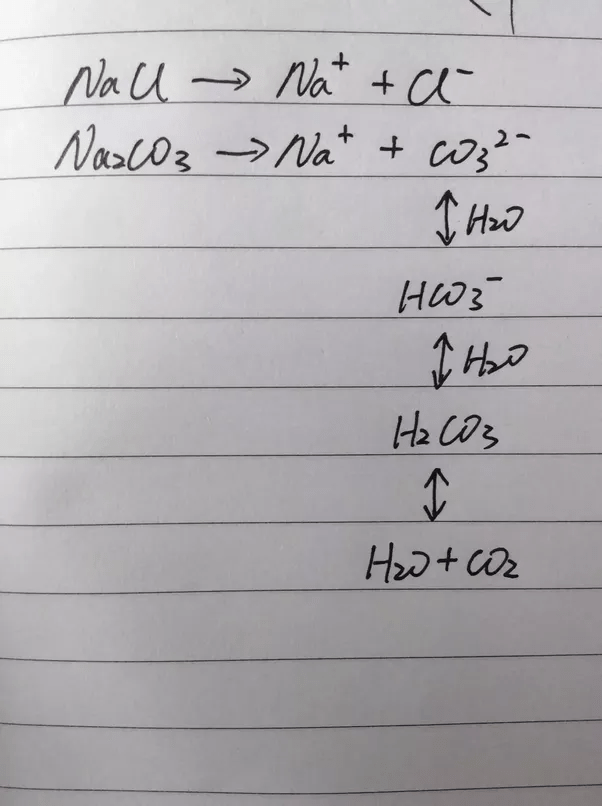 NaCl → Na⁺ + Cl⁻
Na₂CO₃ → Na⁺ + CO₃²⁻
↕ H₂O
HCO₃⁻
↕ H₂O
H₂CO₃
↕
H₂O + CO₂